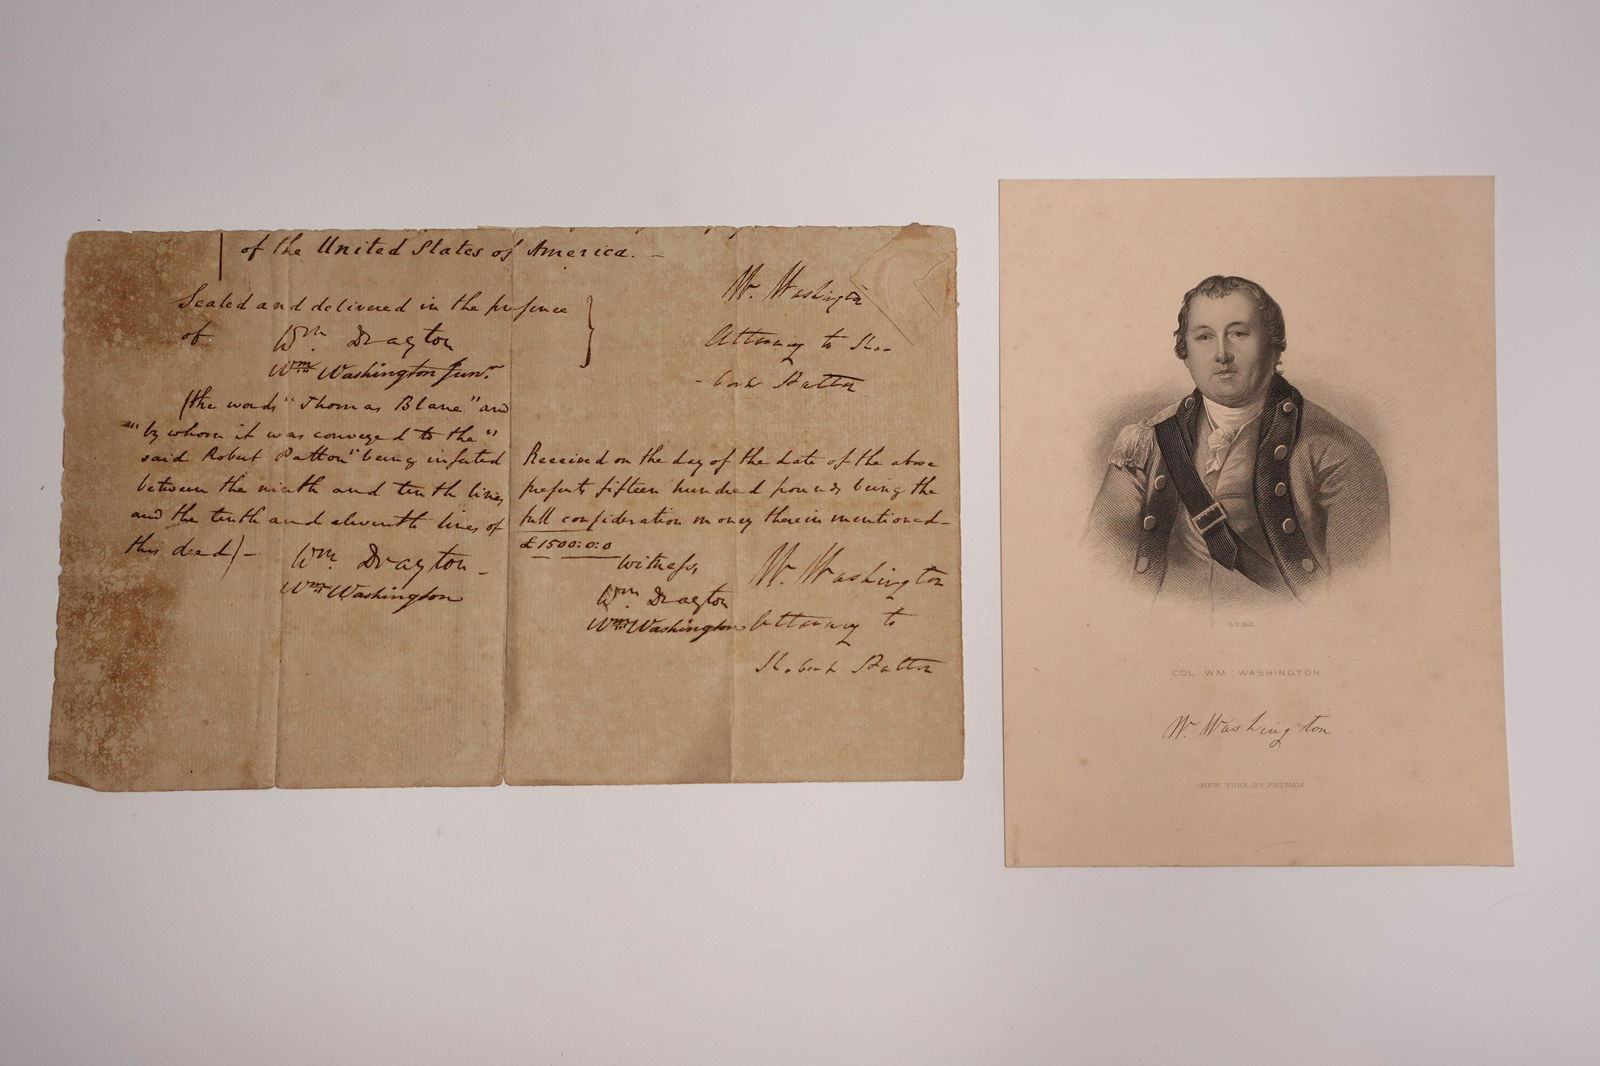 of the United States of America. -
Sealed and delivered in the presence
of
Wm. Drayton
Wm. Washington Junr.
W. Washington
Attorney to Ro-
-bert Patton
(the words "Thomas Blane" and
"by whom it was conveyed to the"
said Robert Patton" being inserted
between the ninth and tenth lines,
and the tenth and eleventh lines of
this deed) -
Wm. Drayton -
Wm Washington
Received on the day of the date of the above
presents fifteen hundred pounds being the
full consideration money therein mentioned -
£1500:0:0
Witness,
Wm. Drayton
Wm Washington
W. Washington
Attorney to
Robert Patton
COL. WM. WASHINGTON.
W. Washington
NEW YORK, G.P. PUTNAM